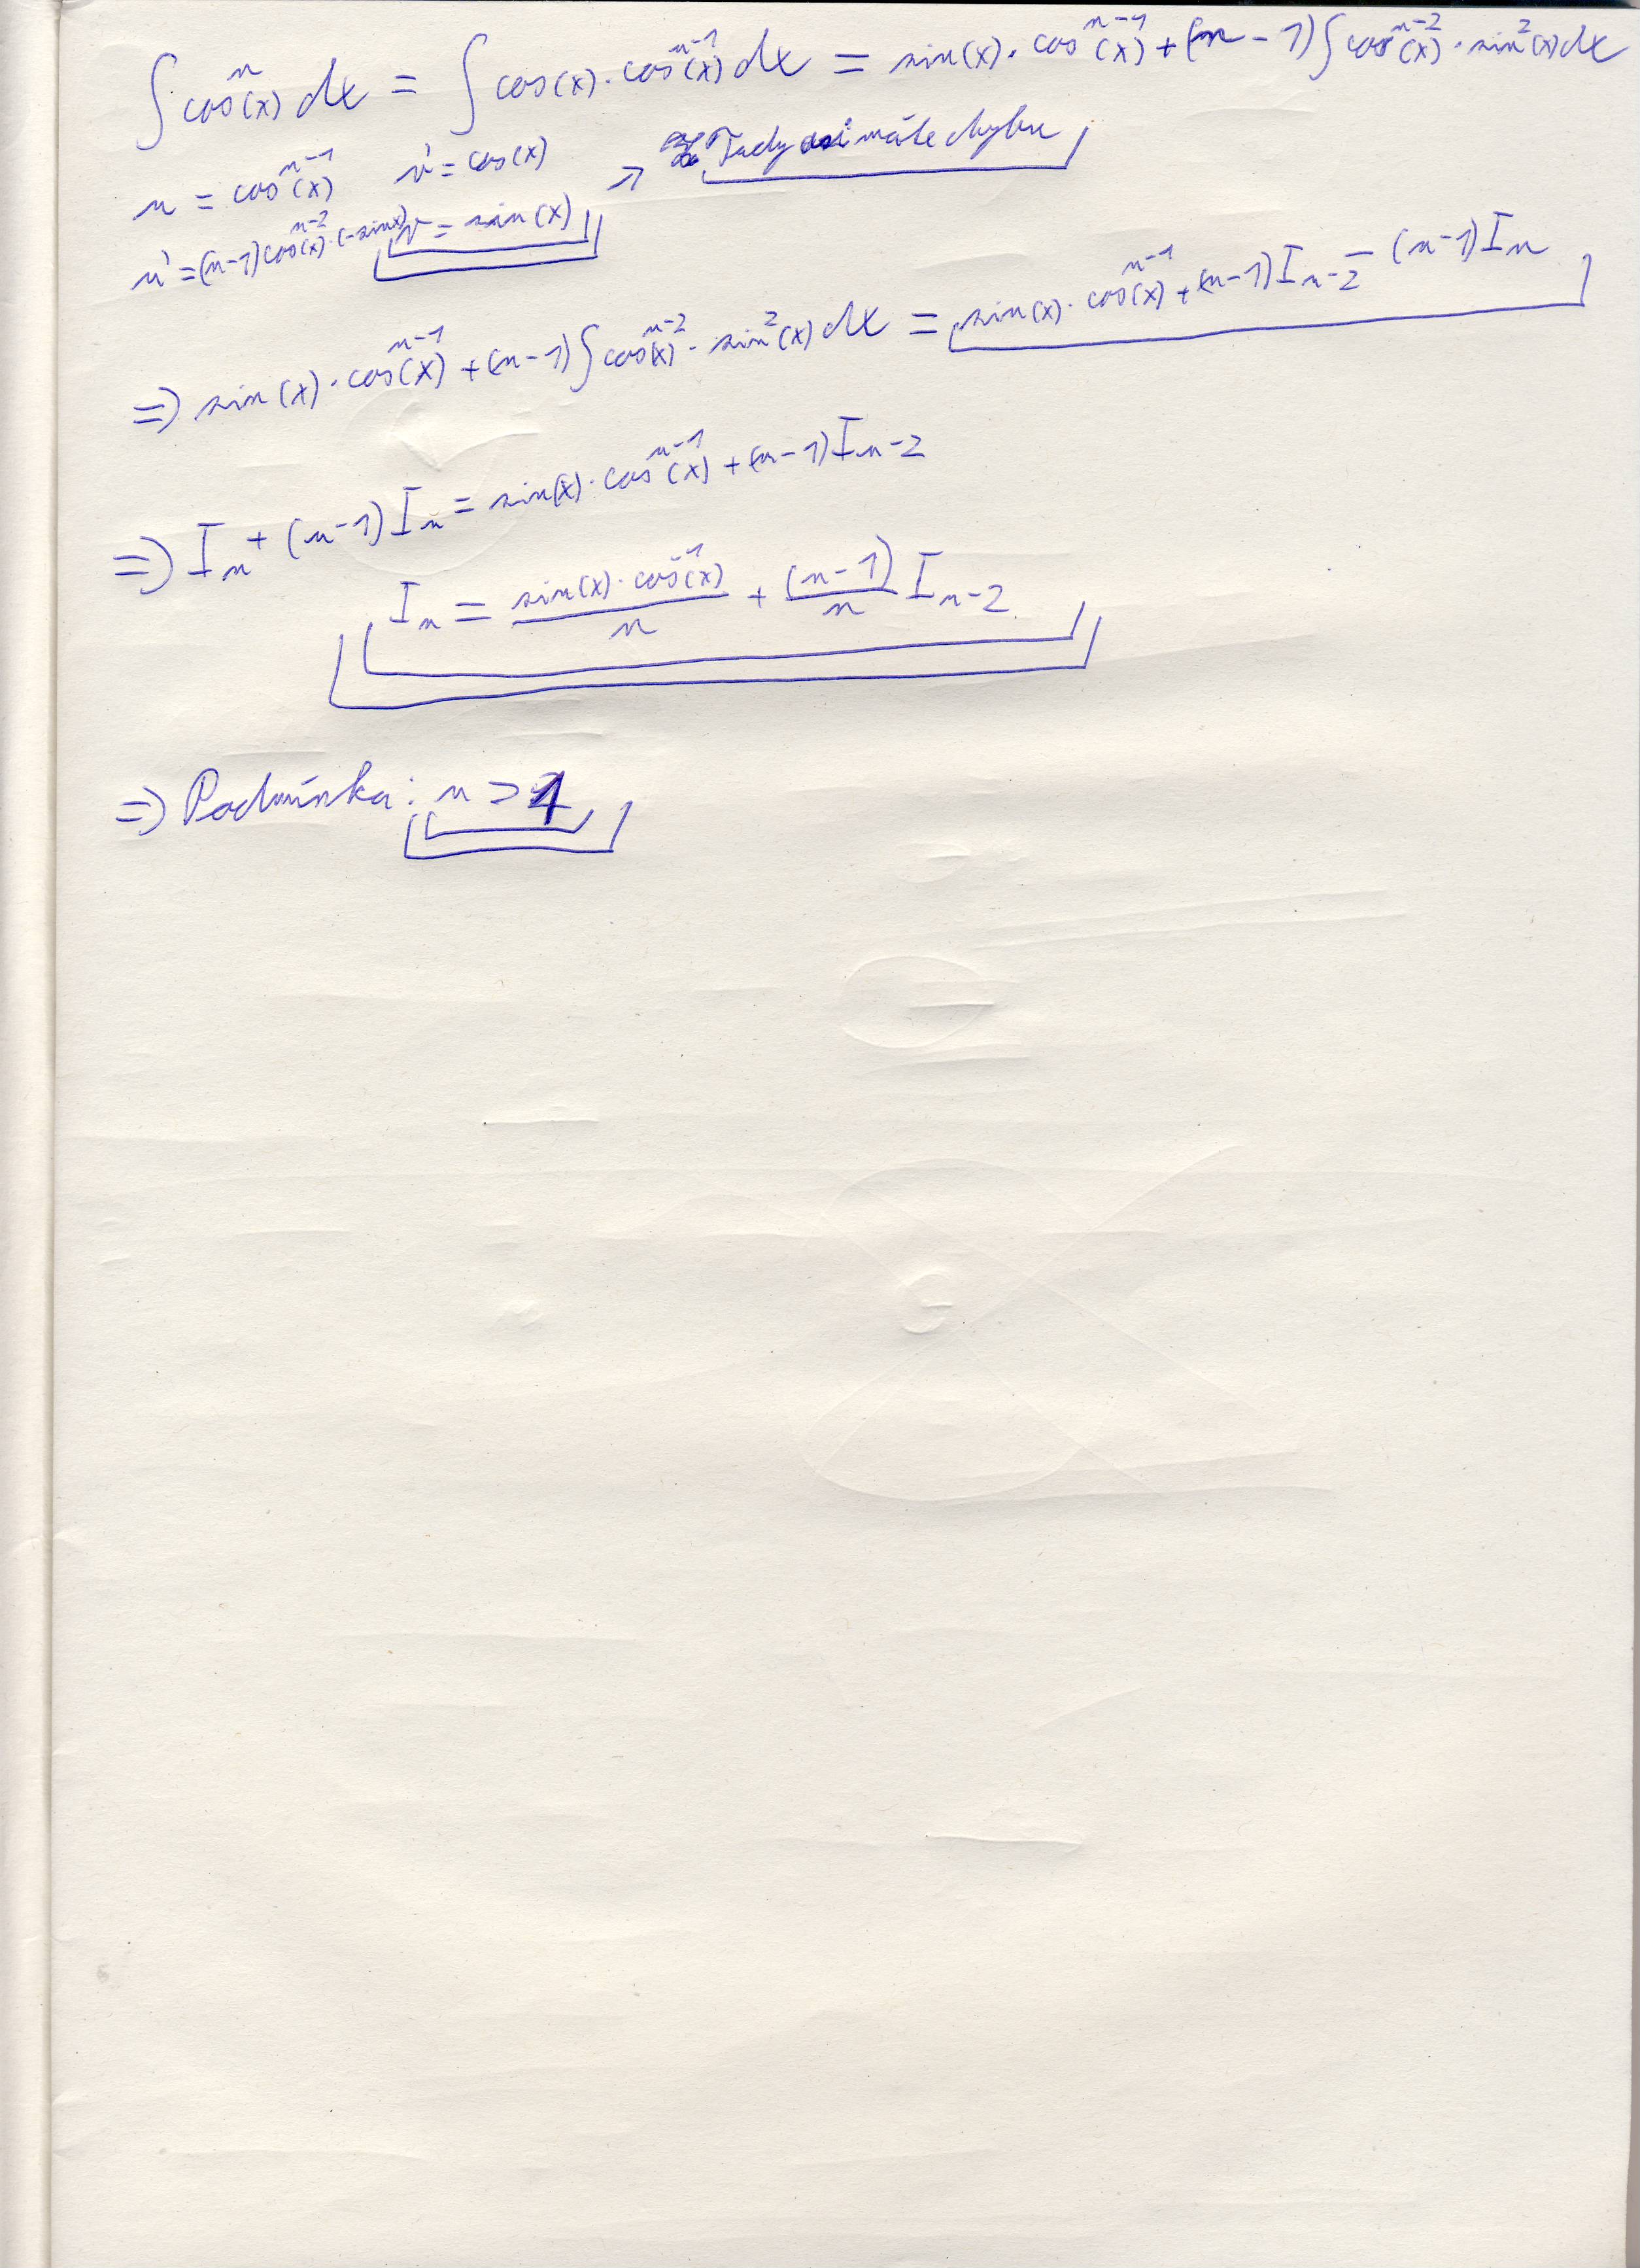 ∫cosⁿ(x) dx = ∫cos(x)·cosⁿ⁻¹(x) dx = sin(x)·cosⁿ⁻¹(x)+(n-1)∫cosⁿ⁻²(x)·sin²(x)dx
u = cosⁿ⁻¹(x) v' = cos(x) → Tady asi máte chybu
u' = (n-1)cosⁿ⁻²(x)·(-sinx) v = sin(x)
⇒ sin(x)·cosⁿ⁻¹(x)+(n-1)∫cosⁿ⁻²(x)·sin²(x)dx = sin(x)·cosⁿ⁻¹(x)+(n-1)Iₙ₋₂-(n-1)Iₙ
⇒ Iₙ+(n-1)Iₙ = sin(x)·cosⁿ⁻¹(x)+(n-1)Iₙ₋₂
Iₙ = sin(x)·cosⁿ⁻¹(x)/n + (n-1)/n Iₙ₋₂
⇒ Podmínka: n > 1